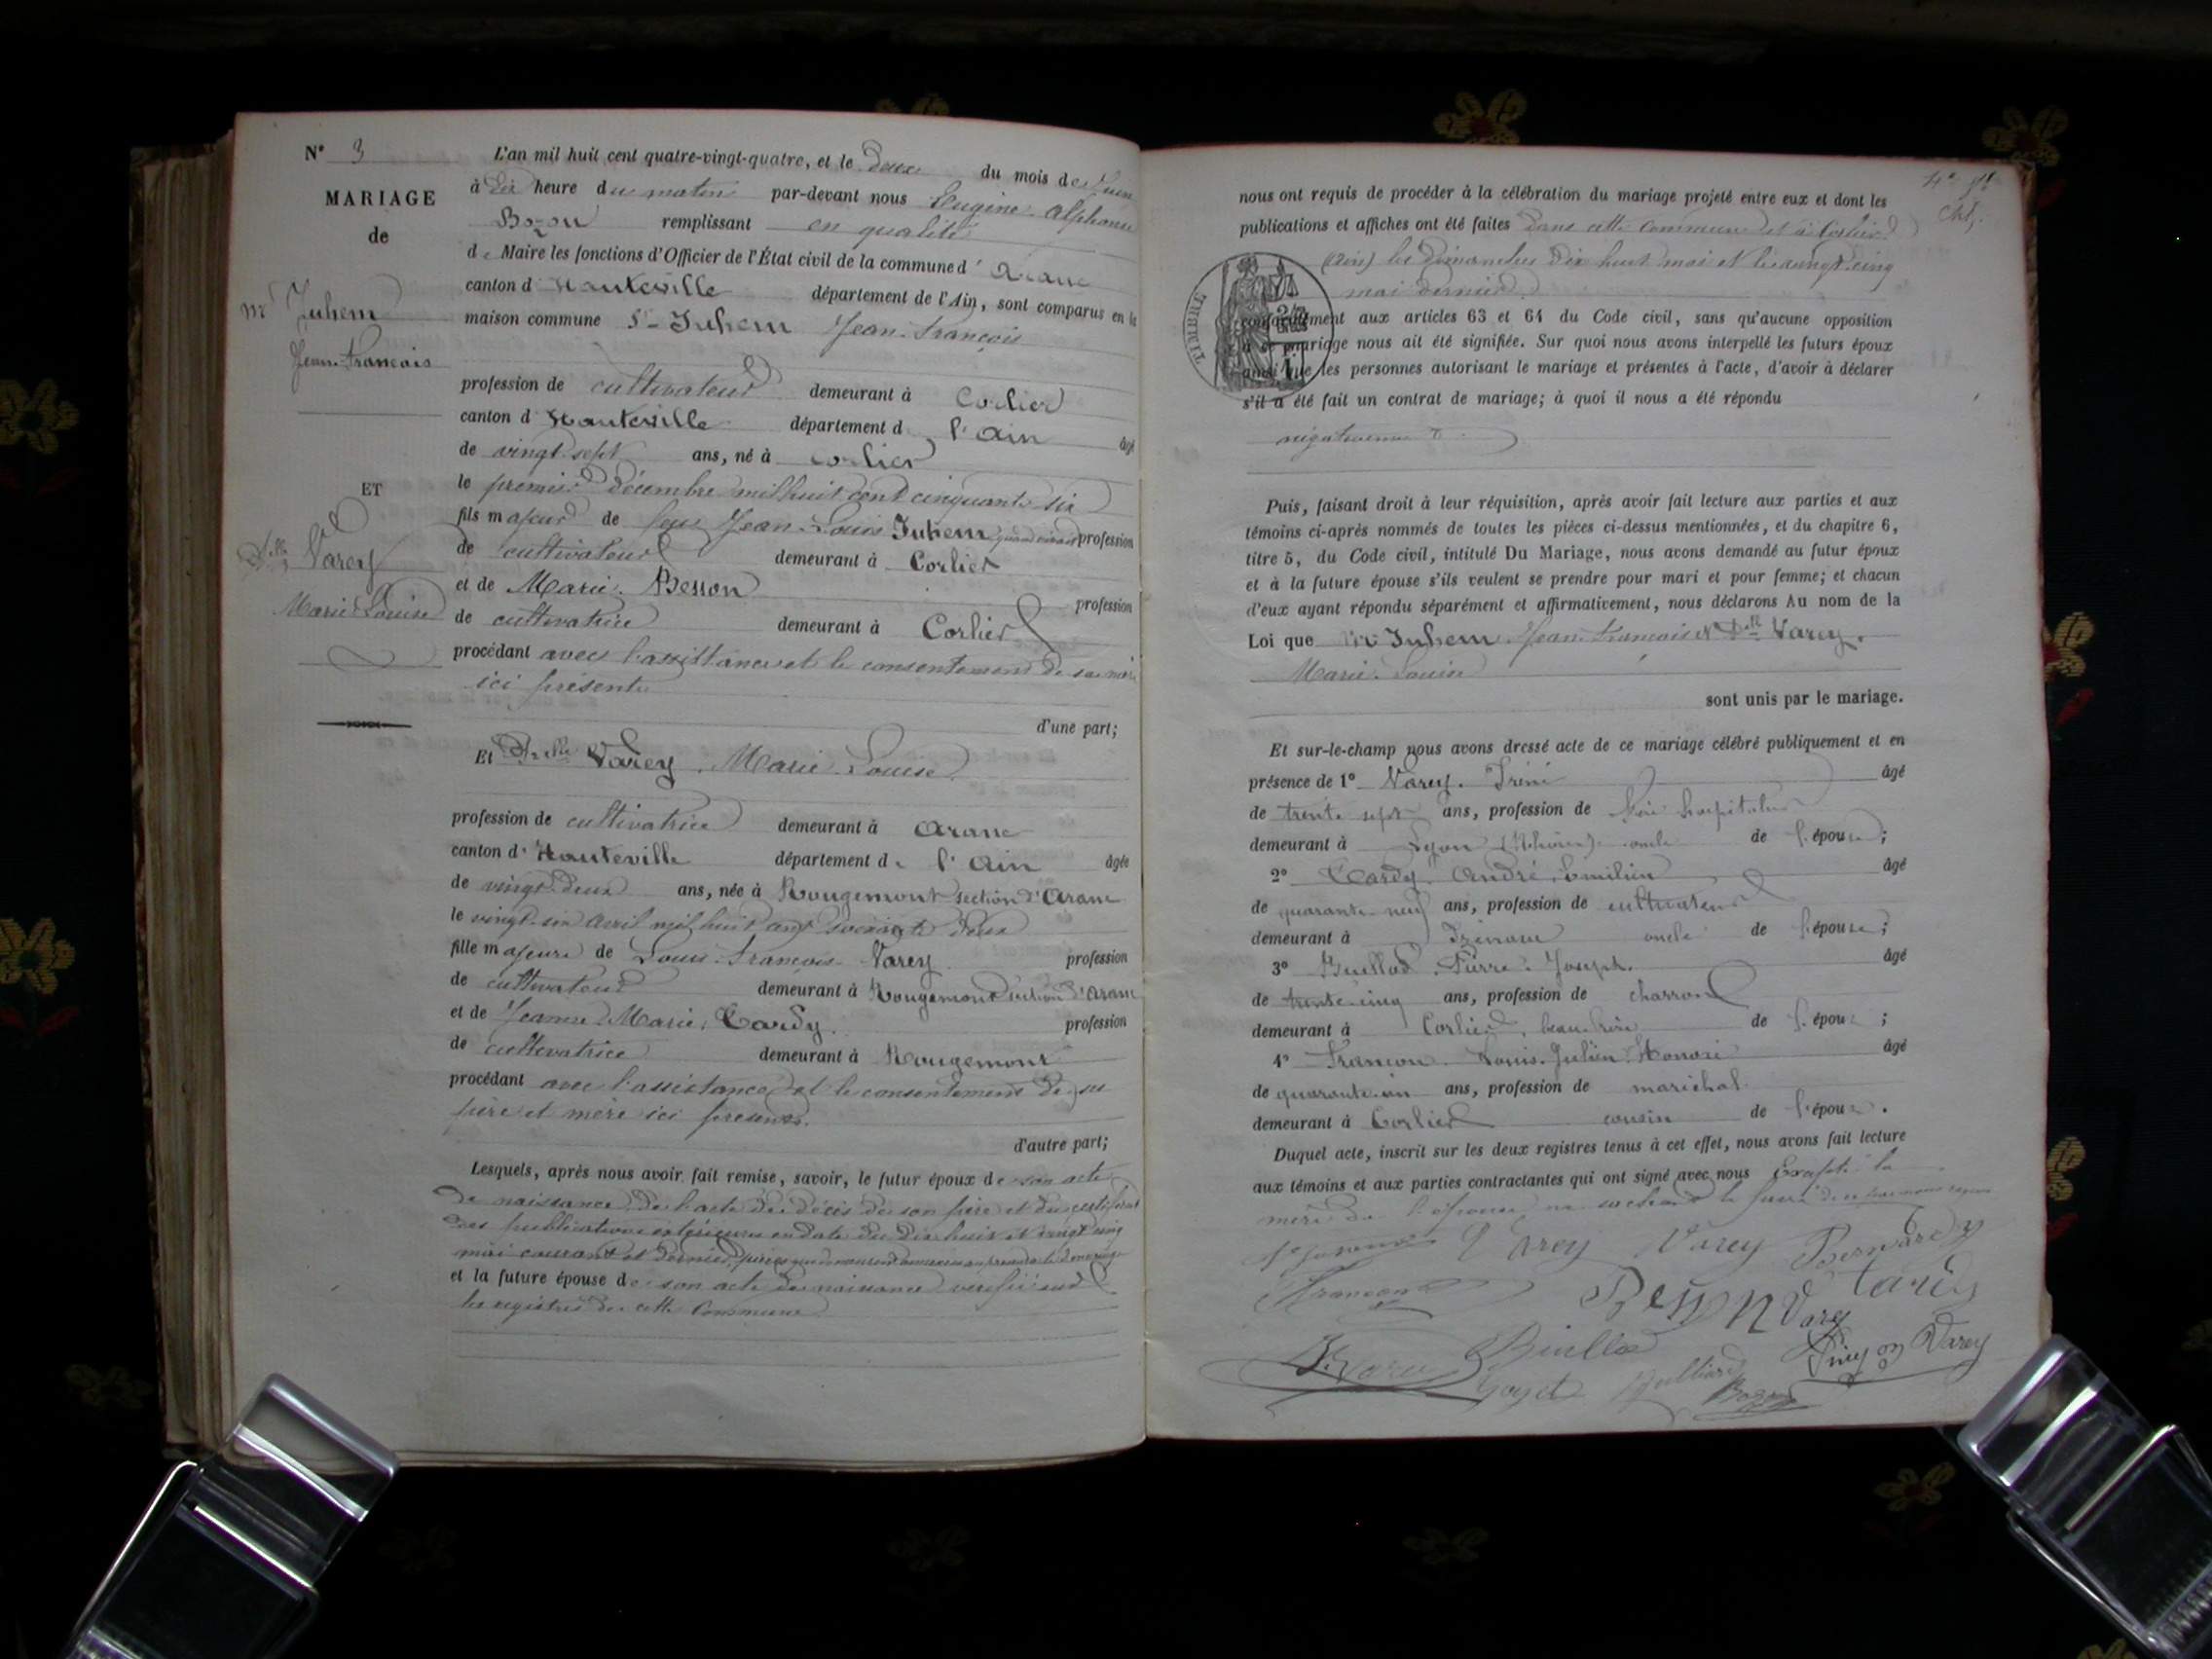 N° 3
MARIAGE
de
Mr Juhem
Jean-François
ET
Delle Varey
Marie-Louise
L'an mil huit cent quatre-vingt-quatre, et le deux du mois de Juin
à dix heure du matin par-devant nous Eugène Alphonse
Bozon remplissant en qualité
de Maire les fonctions d'Officier de l'État civil de la commune d' Aranc
canton d' Hauteville département de l'Ain, sont comparus en la
maison commune Sr Juhem Jean-François
profession de cultivateur demeurant à Corlier
canton d' Hauteville département d l'Ain âgé
de vingt-sept ans, né à Corlier
le premier décembre mil huit cent cinquante six
fils majeur de feu Jean-Louis Juhem quand vivait profession
de cultivateur demeurant à Corlier
et de Marie Besson profession
de cultivatrice demeurant à Corlier
procédant avec l'assistance et le consentement de sa mère
ici présente
d'une part;
Et Delle Varey Marie Louise
profession de cultivatrice demeurant à Aranc
canton d' Hauteville département de l'Ain âgée
de vingt-deux ans, née à Rougemont section d'Aranc
le vingt-un avril mil huit cent soixante deux
fille majeure de Louis-François Varey profession
de cultivateur demeurant à Rougemont section d'Aranc
et de Jeanne-Marie Tardy profession
de cultivatrice demeurant à Rougemont
procédant avec l'assistance et le consentement de ses
père et mère ici présents.
d'autre part;
Lesquels, après nous avoir fait remise, savoir, le futur époux de son acte
de naissance, de l'acte de décès de son père et du certificat
des publications extérieures en date du dix huit et vingt cinq
mai courant et dernier, pièces qui demeurent annexées au présent
et la future épouse de son acte de naissance vérifié sur
les registres de cette Commune
nous ont requis de procéder à la célébration du mariage projeté entre eux et dont les
publications et affiches ont été faites dans cette commune et à Corlier
(Ain) les dimanches dix huit mai et le vingt-cinq
mai dernier
TIMBRE
conformément aux articles 63 et 64 du Code civil, sans qu'aucune opposition
à ce mariage nous ait été signifiée. Sur quoi nous avons interpellé les futurs époux
ainsi que les personnes autorisant le mariage et présentes à l'acte, d'avoir à déclarer
s'il a été fait un contrat de mariage; à quoi il nous a été répondu
négativement
Puis, faisant droit à leur réquisition, après avoir fait lecture aux parties et aux
témoins ci-après nommés de toutes les pièces ci-dessus mentionnées, et du chapitre 6,
titre 5, du Code civil, intitulé Du Mariage, nous avons demandé au futur époux
et à la future épouse s'ils veulent se prendre pour mari et pour femme; et chacun
d'eux ayant répondu séparément et affirmativement, nous déclarons Au nom de la
Loi que Mr Juhem Jean-François et Delle Varey
Marie-Louise
sont unis par le mariage.
Et sur-le-champ nous avons dressé acte de ce mariage célébré publiquement et en
présence de 1° Varey âgé
de trente sept ans, profession de
demeurant à Lyon (Rhône) oncle de l'épouse;
2° Tardy André Emilien âgé
de quarante-neuf ans, profession de cultivateur
demeurant à oncle de l'épouse;
3° Pierre-Joseph âgé
de trente-cinq ans, profession de charron
demeurant à Corlier, beau-frère de l'époux;
4° Françon Louis-Julien-Honoré âgé
de quarante-un ans, profession de maréchal
demeurant à Corlier cousin de l'époux.
Duquel acte, inscrit sur les deux registres tenus à cet effet, nous avons fait lecture
aux témoins et aux parties contractantes qui ont signé avec nous Excepté la
mère de l'épouse
Varey Varey Bernardy
Françon Besson Tardy
Varey
Goyet Bozon Varey